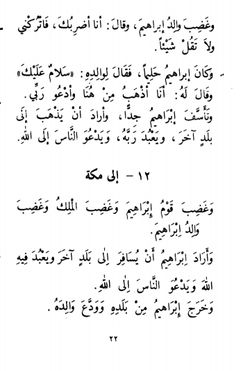 وَغَضِبَ وَالِدُ إِبراهِيمَ، وقالَ: أنا أَضْرِبُكَ، فَاتْرُكْنِي
ولاَ تَقُلْ شَيْئاً.
وَكَانَ إبراهيم حَلِيماً، فَقَالَ لِوالِدِهِ: «سَلامٌ عَلَيْكَ»
وقَالَ لَهُ: أَنا أَذْهَبُ مِنْ هُنَا وأَدْعُو رَبِّي.
وَتَأَسَّفَ إِبْرَاهِيمُ جِدًّا، وأَرادَ أَنْ يَذْهَبَ إلَى
بَلَدٍ آخَرَ، وَيَعْبُدَ رَبَّهُ، وَيَدْعُوَ النَّاسَ إِلَى اللهِ.
١٢ - إلى مكة
وَغَضِبَ قَوْمُ إِبْرَاهِيمَ وَغَضِبَ المَلِكُ وَغَضِبَ
وَالِدُ إِبْرَاهِيمَ.
وَأَرَادَ إِبْرَاهِيمُ أَنْ يُسَافِرَ إِلَى بَلَدٍ آخَرَ وَيَعْبُدَ فِيهِ
اللهَ وَيَدْعُوَ النَّاسَ إِلَى اللهِ.
وَخَرَجَ إِبْرَاهِيمُ مِنْ بَلَدِهِ وَوَدَّعَ وَالِدَهُ.
٢٢